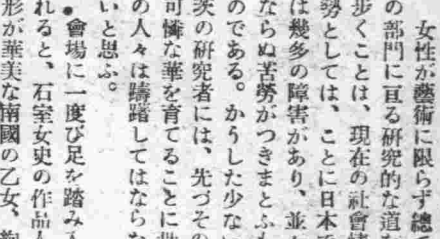 女性が藝術に限らず總て
の部門に亘る硏究的な道を
步くことは、現在の社會情
勢としては、ことに日本で
は幾多の障害があり、並々
ならぬ苦勞がつきまとふも
のである。かうした少ない
茨の硏究者には、先づその
可憐な華を育てることに世
の人々は躊躇してはならな
いと思ふ。
●會場に一度び足を踏み入
れると、石室女史の作品人
形が華美な南國の乙女、